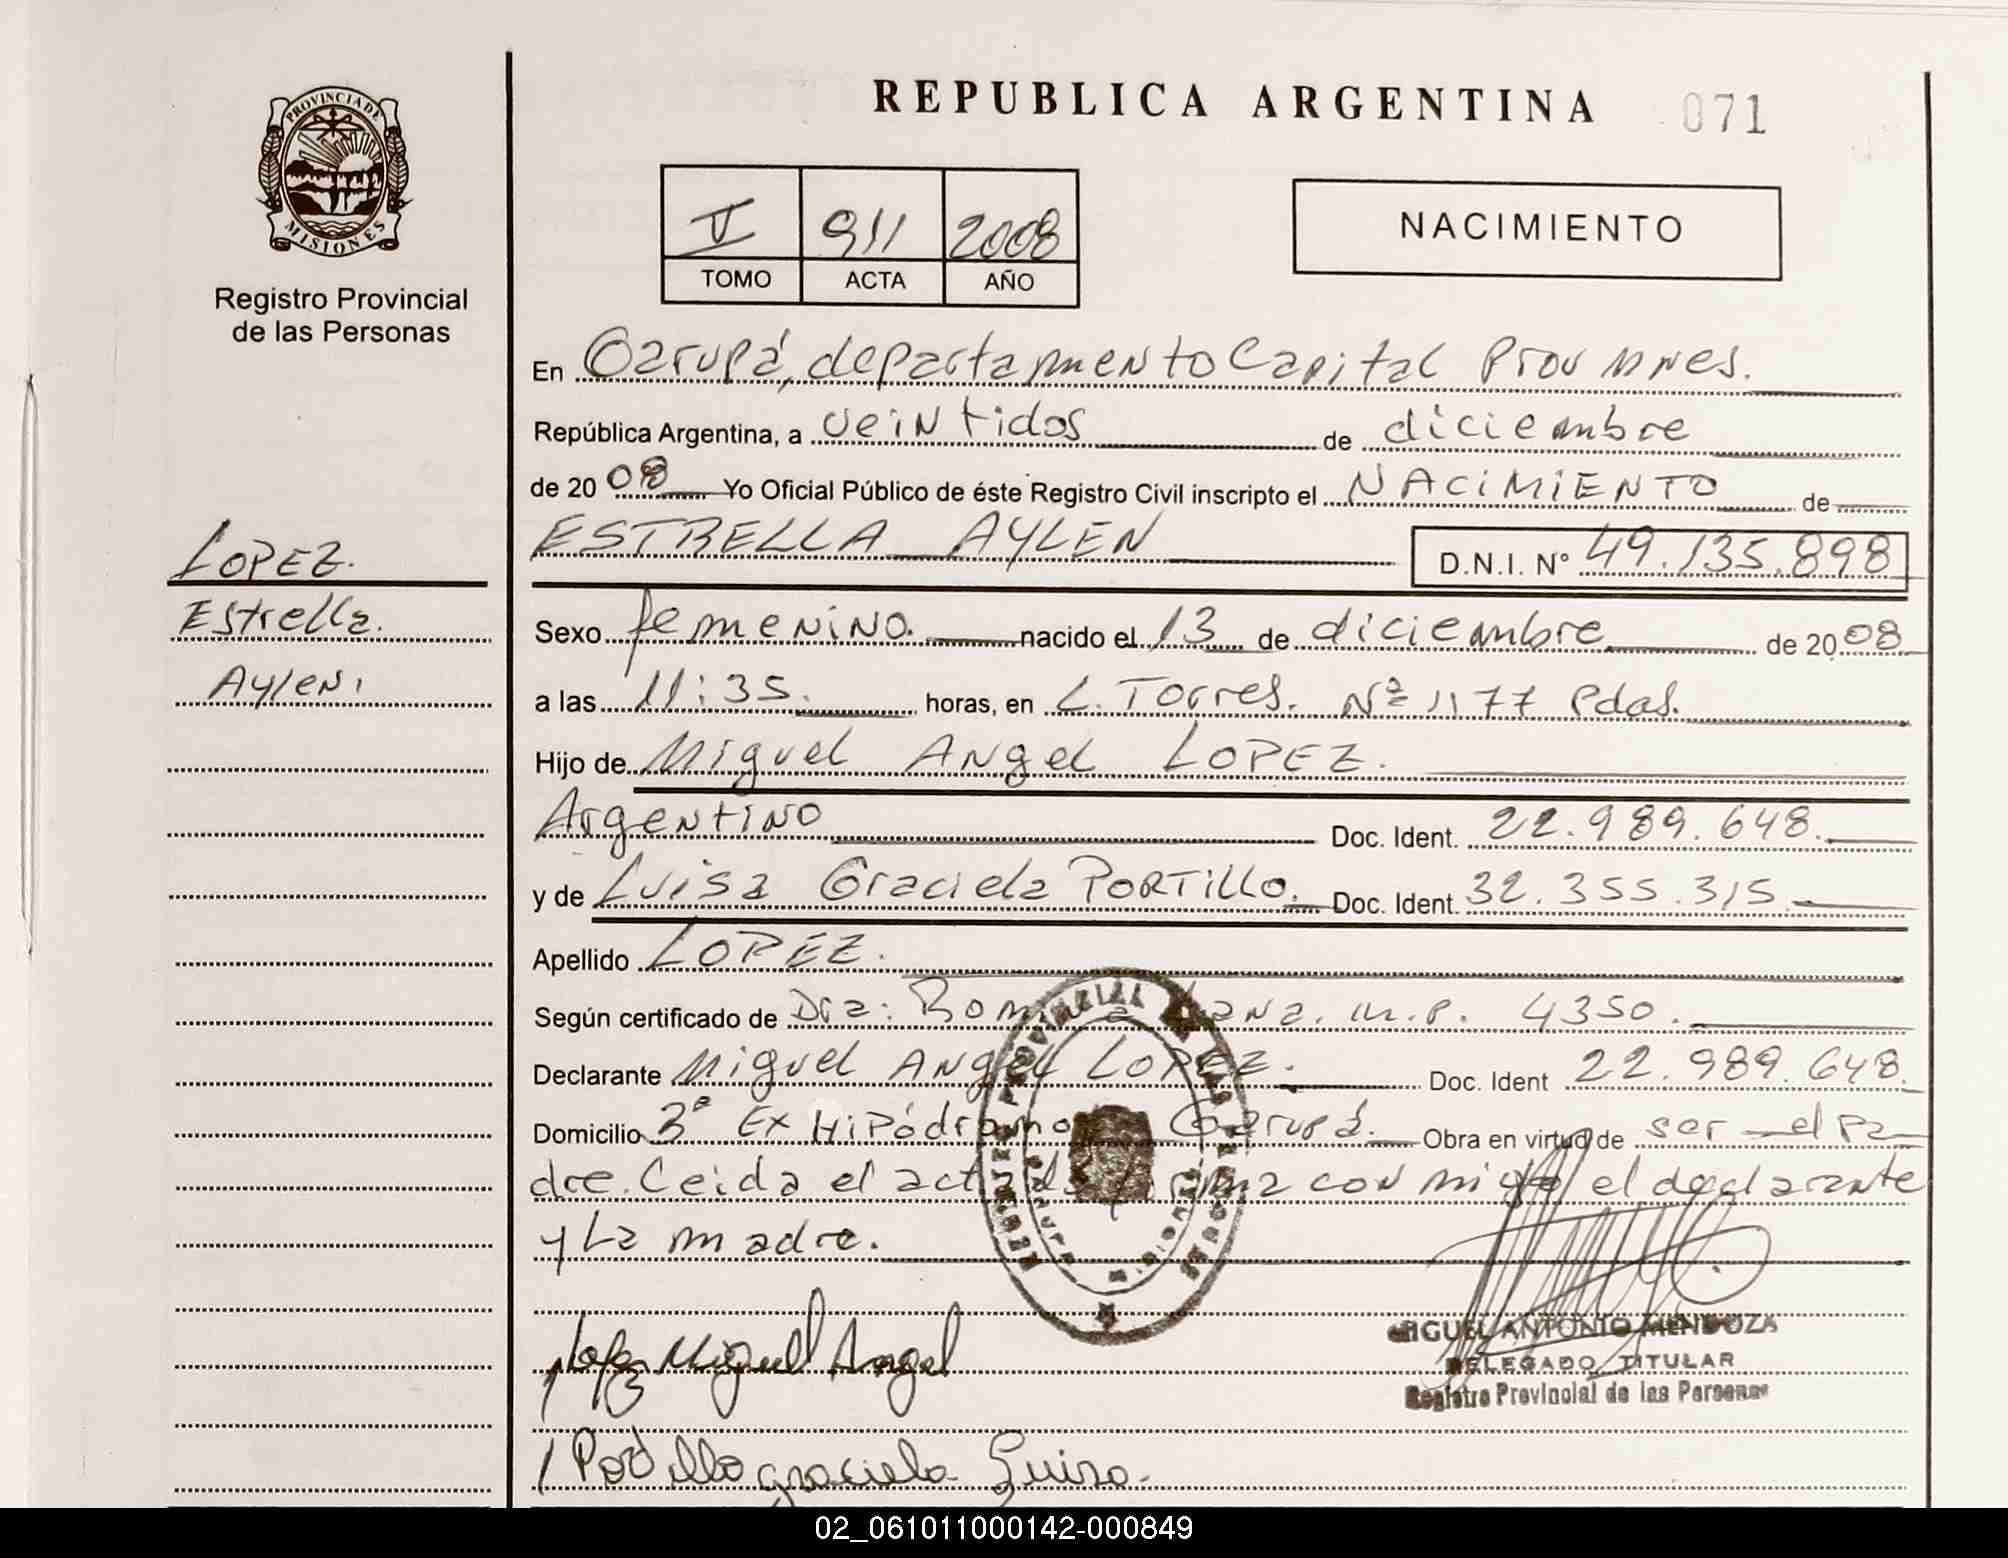 REPUBLICA ARGENTINA 071
PROVINCIA DE
MISIONES
Registro Provincial
de las Personas
V 911 2008
TOMO ACTA AÑO
NACIMIENTO
En Garupá, departamento Capital Prov Mnes.
República Argentina, a veintidos de diciembre
de 20 08 Yo Oficial Público de éste Registro Civil inscripto el NACIMIENTO de
ESTRELLA AYLEN D.N.I. Nº 49.135.898
LOPEZ.
Estrella.
Aylen.
Sexo femenino. nacido el 13 de diciembre de 20 08
a las 11:35. horas, en L. Torres. Nº 1177 Pdas.
Hijo de Miguel Angel LOPEZ.
Argentino Doc. Ident. 22.989.648.
y de Luisa Graciela PORTILLO. Doc. Ident. 32.355.315
Apellido LOPEZ.
Según certificado de Dra: m.p. 4350.
Declarante Miguel Angel LOPEZ. Doc. Ident 22.989.648.
Domicilio 3ª Ex Hipódromo Garupá. Obra en virtud de ser el pa
dre. Leida el acta la firma con migo el declarante
y La madre.
Lopez Miguel Angel
MIGUEL ANTONIO MENDOZA
DELEGADO TITULAR
Registro Provincial de las Personas
Portillo graciela Luisa.
02_061011000142-000849